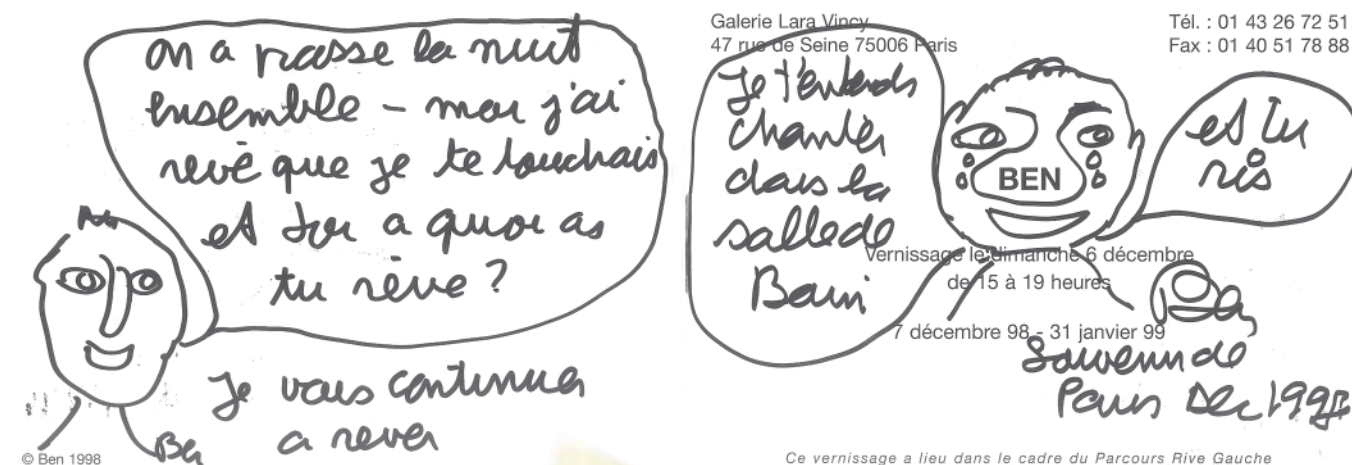 on a passe la nuit
ensemble - moi j'ai
revé que je te touchais
et toi a quoi as
tu rêve ?
Je vais continuer
a rever
Ben
© Ben 1998
Galerie Lara Vincy
47 rue de Seine 75006 Paris
Tél. : 01 43 26 72 51
Fax : 01 40 51 78 88
Je t'entends
chanter
dans la
salle de
Bain
BEN
et tu
ris
Vernissage le dimanche 6 décembre
de 15 à 19 heures
7 décembre 98 - 31 janvier 99
Ben
Souvenir de
Paris Dec
Ce vernissage a lieu dans le cadre du Parcours Rive Gauche